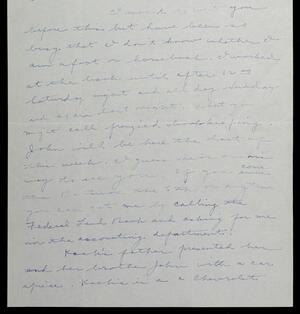 I would to see you
before this but have been so
busy that I don't know whether I
am afoot or horseback. I worked
at the bank until after 12:00
Saturday night and all day Sunday
and again last night. What you
might call frenzied stockkeeping.
John will be here the last of
this week. I guess is on
way to see you. If you come
the 4th or the 5th or anytime
you can get me by calling the
Federal Land Bank and asking for me
in the accounting department.
father presented her
and her brother John with a car
apiece. is a Chevrolet